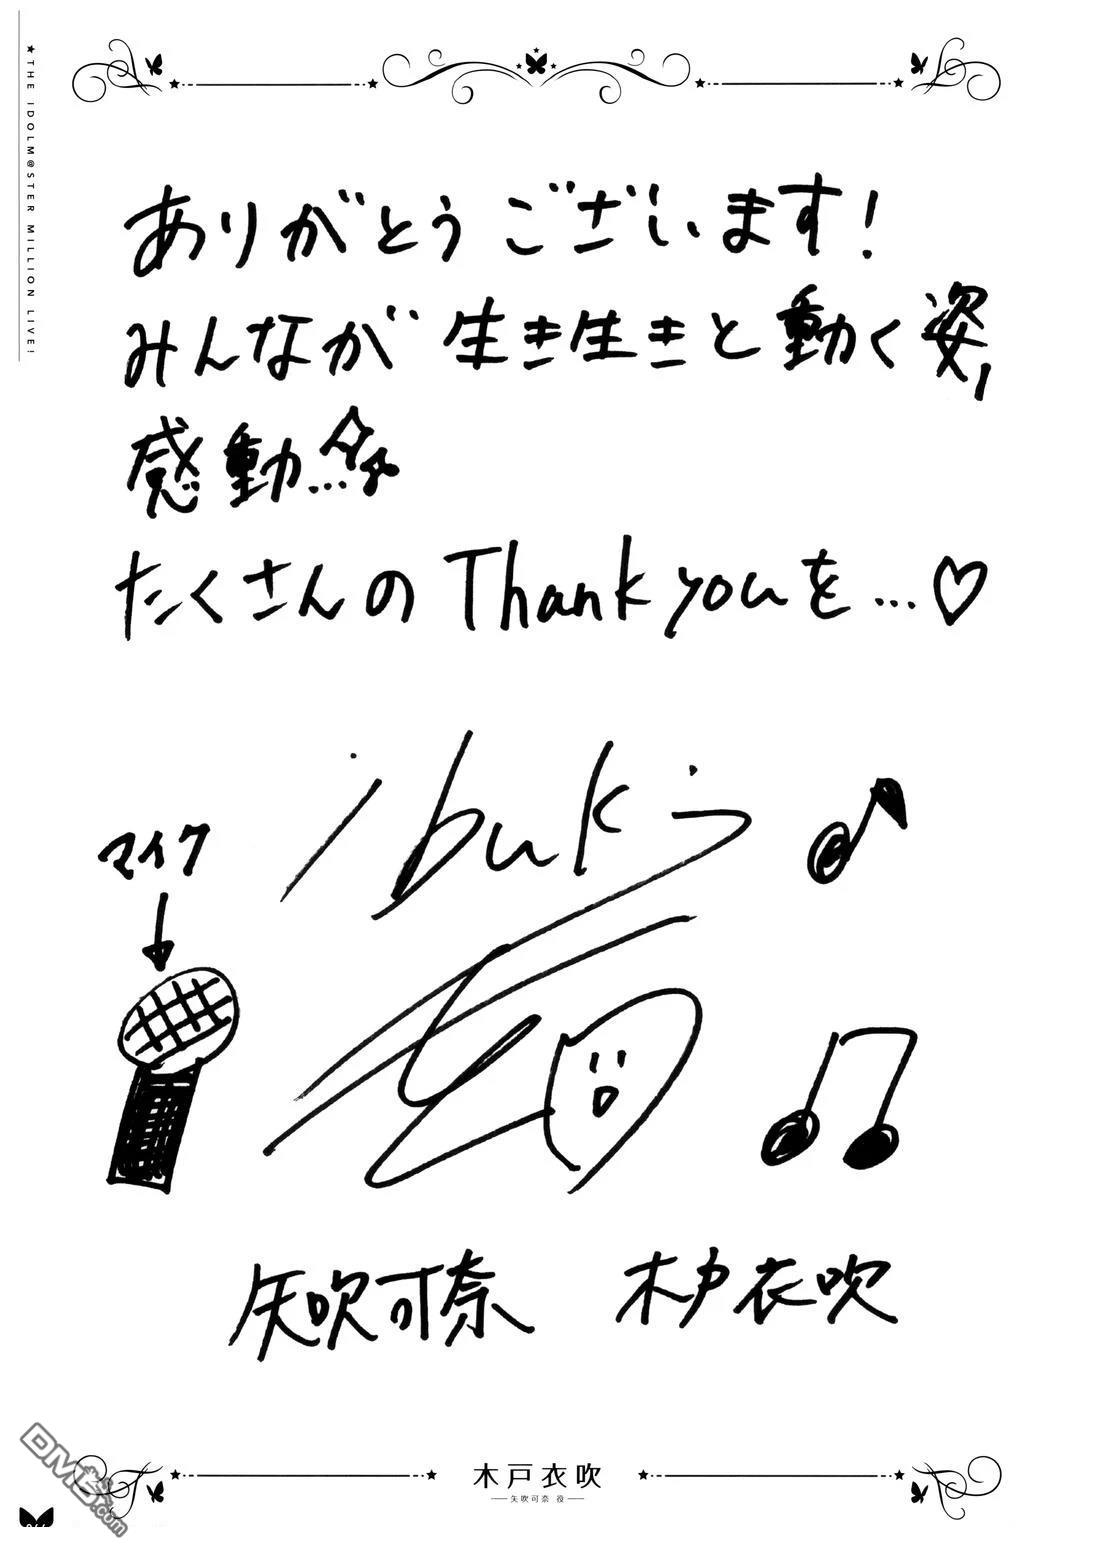 ★THE IDOLM@STER MILLION LIVE!
ありがとうございます!
みんなが生き生きと動く姿、
感動…
たくさんのThank youを…♡
ibuki
マイク
↓
矢吹可奈 木戸衣吹
木戸衣吹
矢吹可奈 役